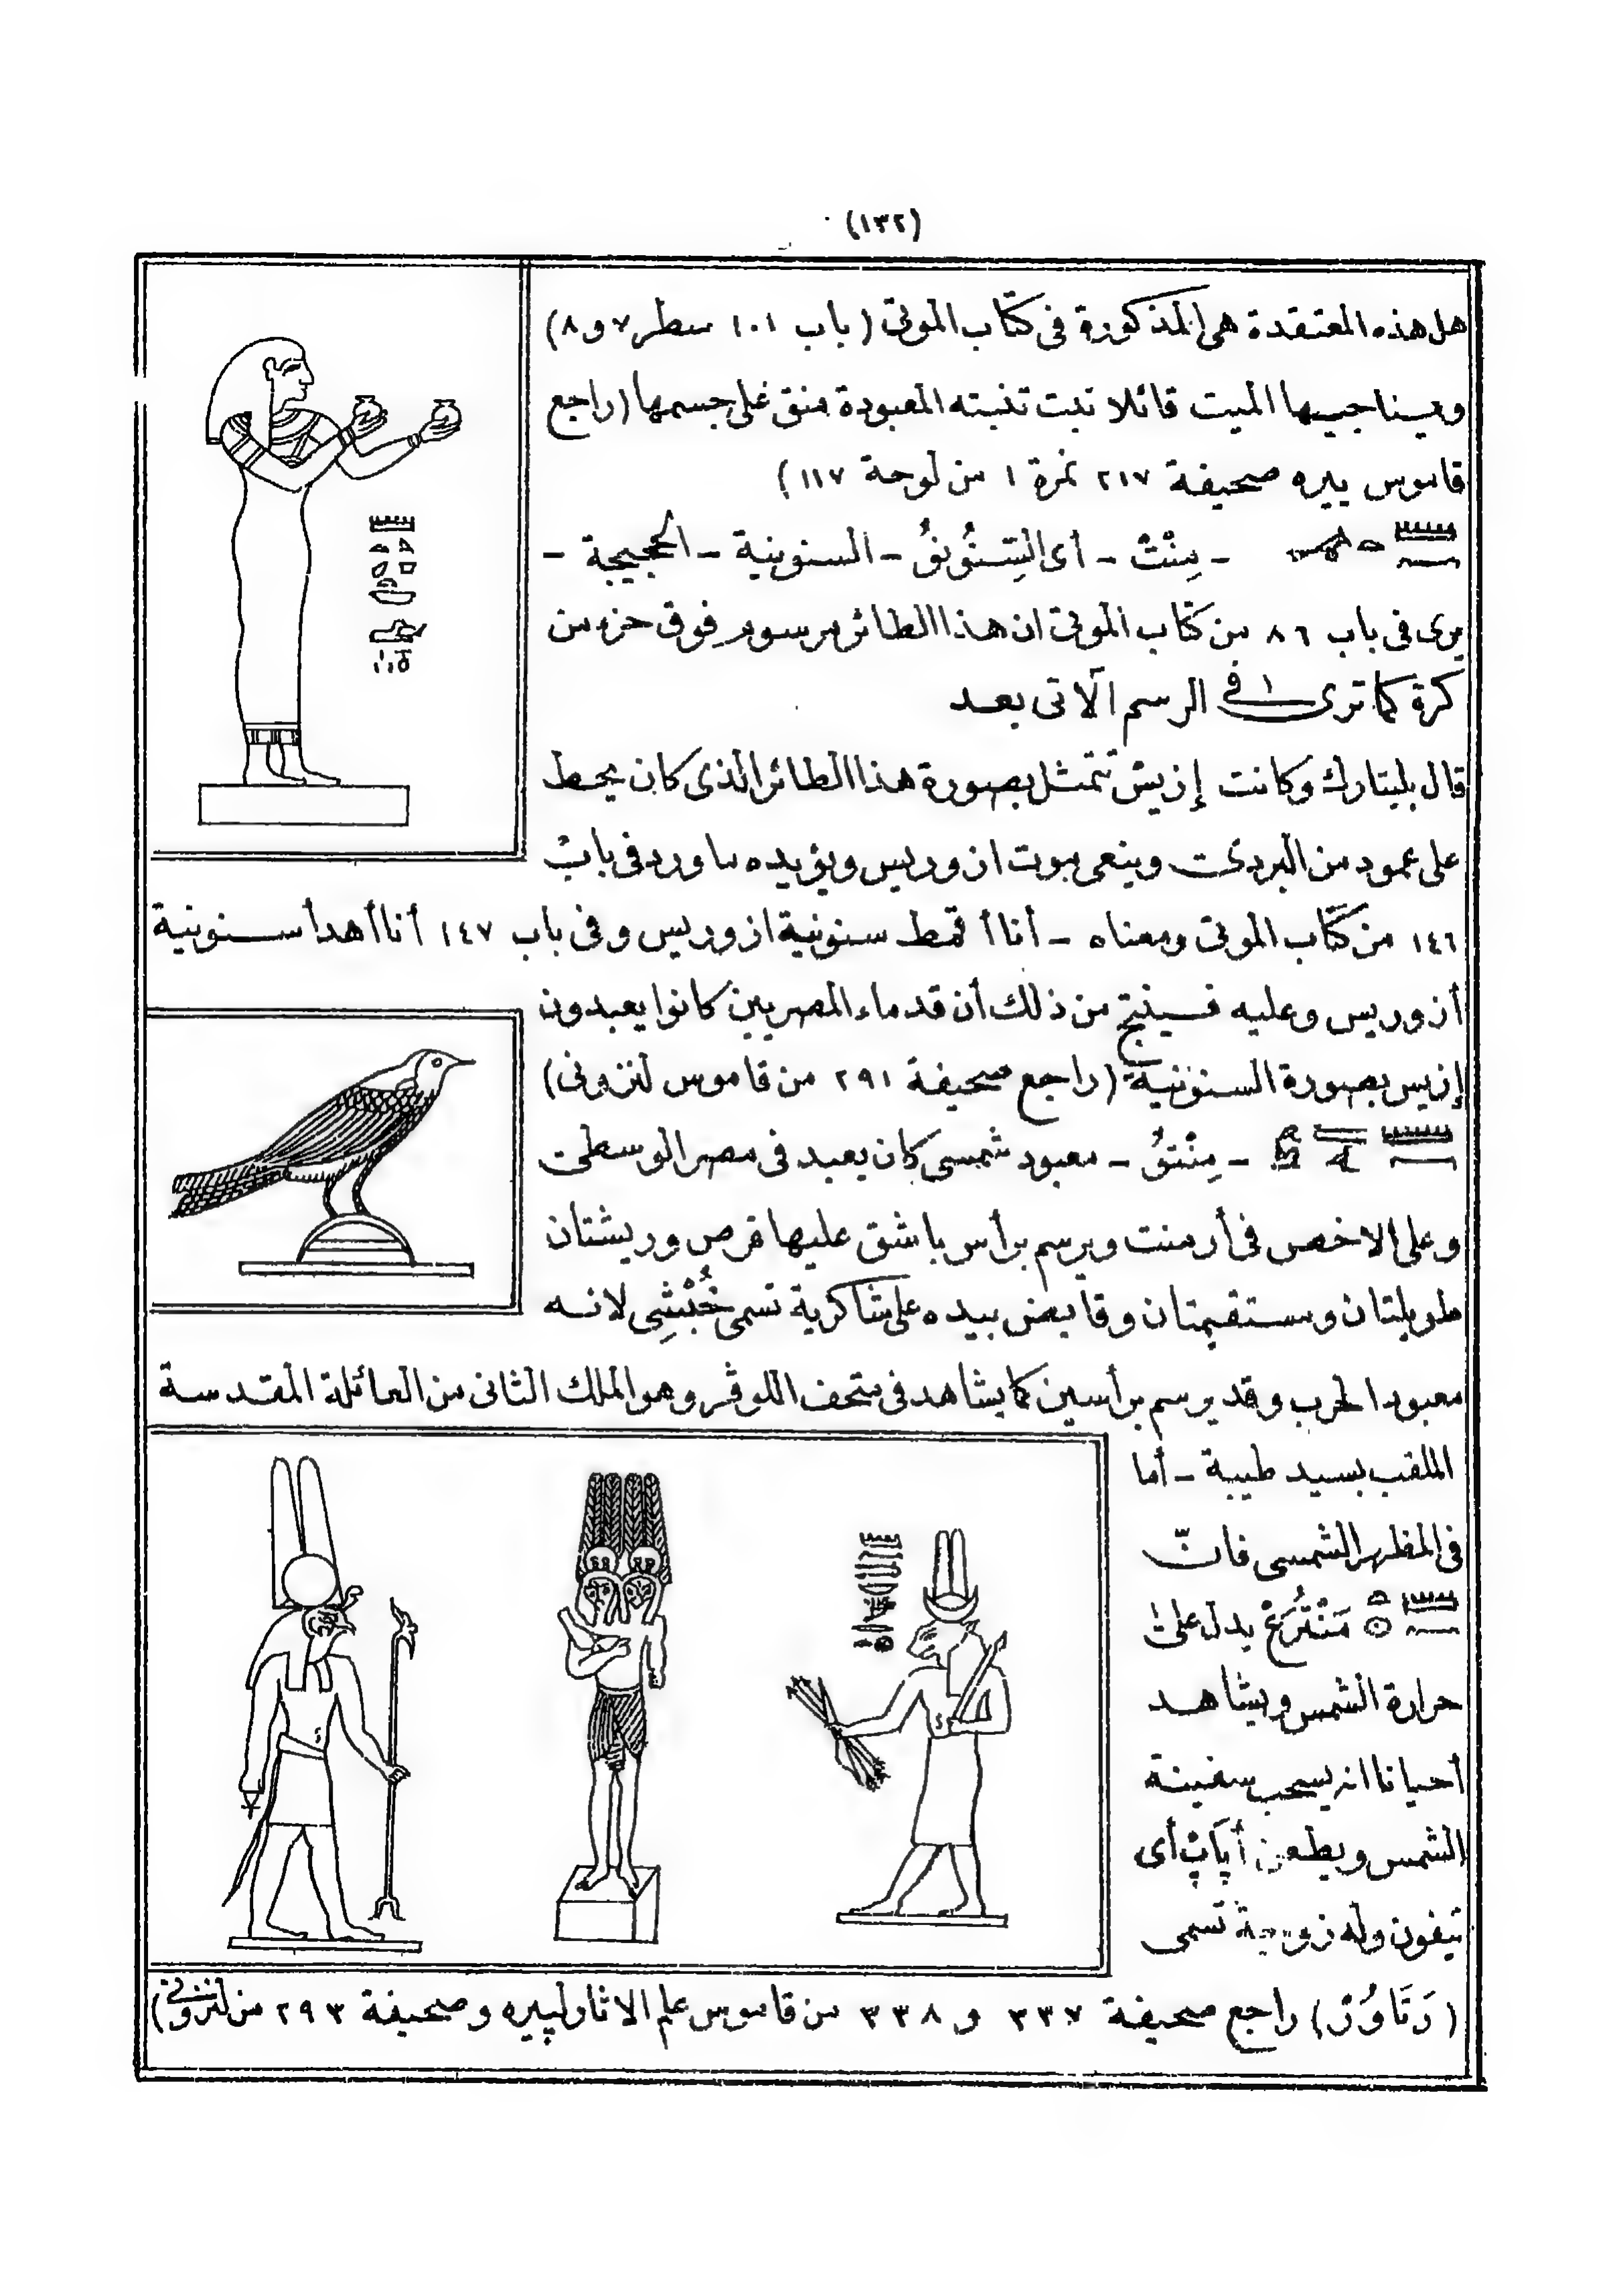 (١٣٢)
هل هذه المعتقدة هى المذكورة فى كتاب الموتى (باب ١٠١ سطر ٧ و ٨)
ويناجيها الميت قائلا نبت تنبته المعبودة منق على جسمها (راجع
قاموس بيره صحيفة ٢١٧ نمرة ١ من لوحة ١١٧)
- مِنْتْ - أى السنونو - السنونية - الحجيجة -
يرى فى باب ٨٦ من كتاب الموتى ان هذا الطائر مرسوم فوق جزء من
كرة كما ترى فى الرسم الآتى بعد
قال بليتارك وكانت إزيس تتمثل بصورة هذا الطائر الذى كان يحط
على عمود من البردى وينعى موت ازوريس ويؤيده ما ورد فى باب
١٤٦ من كتاب الموتى ومعناه - أنا أقمط سنونية ازوريس وفى باب ١٤٧ أنا أهدأ سنونية
أزوريس وعليه فسينتج من ذلك أن قدماء المصريين كانوا يعبدون
إزيس بصورة السنونية (راجع صحيفة ٢٩١ من قاموس لنزونى)
- مِنْتُو - معبود شمسى كان يعبد فى مصر الوسطى
وعلى الاخص فى أرمنت ويرسم برأس باشق عليها قرص وريشتان
طويلتان ومستقيمتان وقابض بيده على شاكرية تسمى خُبْشِى لانه
معبود الحرب وقد يرسم برأسين كما يشاهد فى متحف اللوڤر وهو الملك الثانى من العائلة المقدسة
الملقب بسيد طيبة - أما
فى المظهر الشمسى فانّ
مَنْتُرَعْ يدل على
حرارة الشمس ويشاهد
أحيانا انه يسحب سفينة
الشمس ويطعن أپاپ أى
تيفون وله زوجة تسمى
(رَتَاوُىْ) راجع صحيفة ٣٣٧ و ٣٣٨ من قاموس علم الاثار لپيره وصحيفة ٢٩٣ من لنزونى)